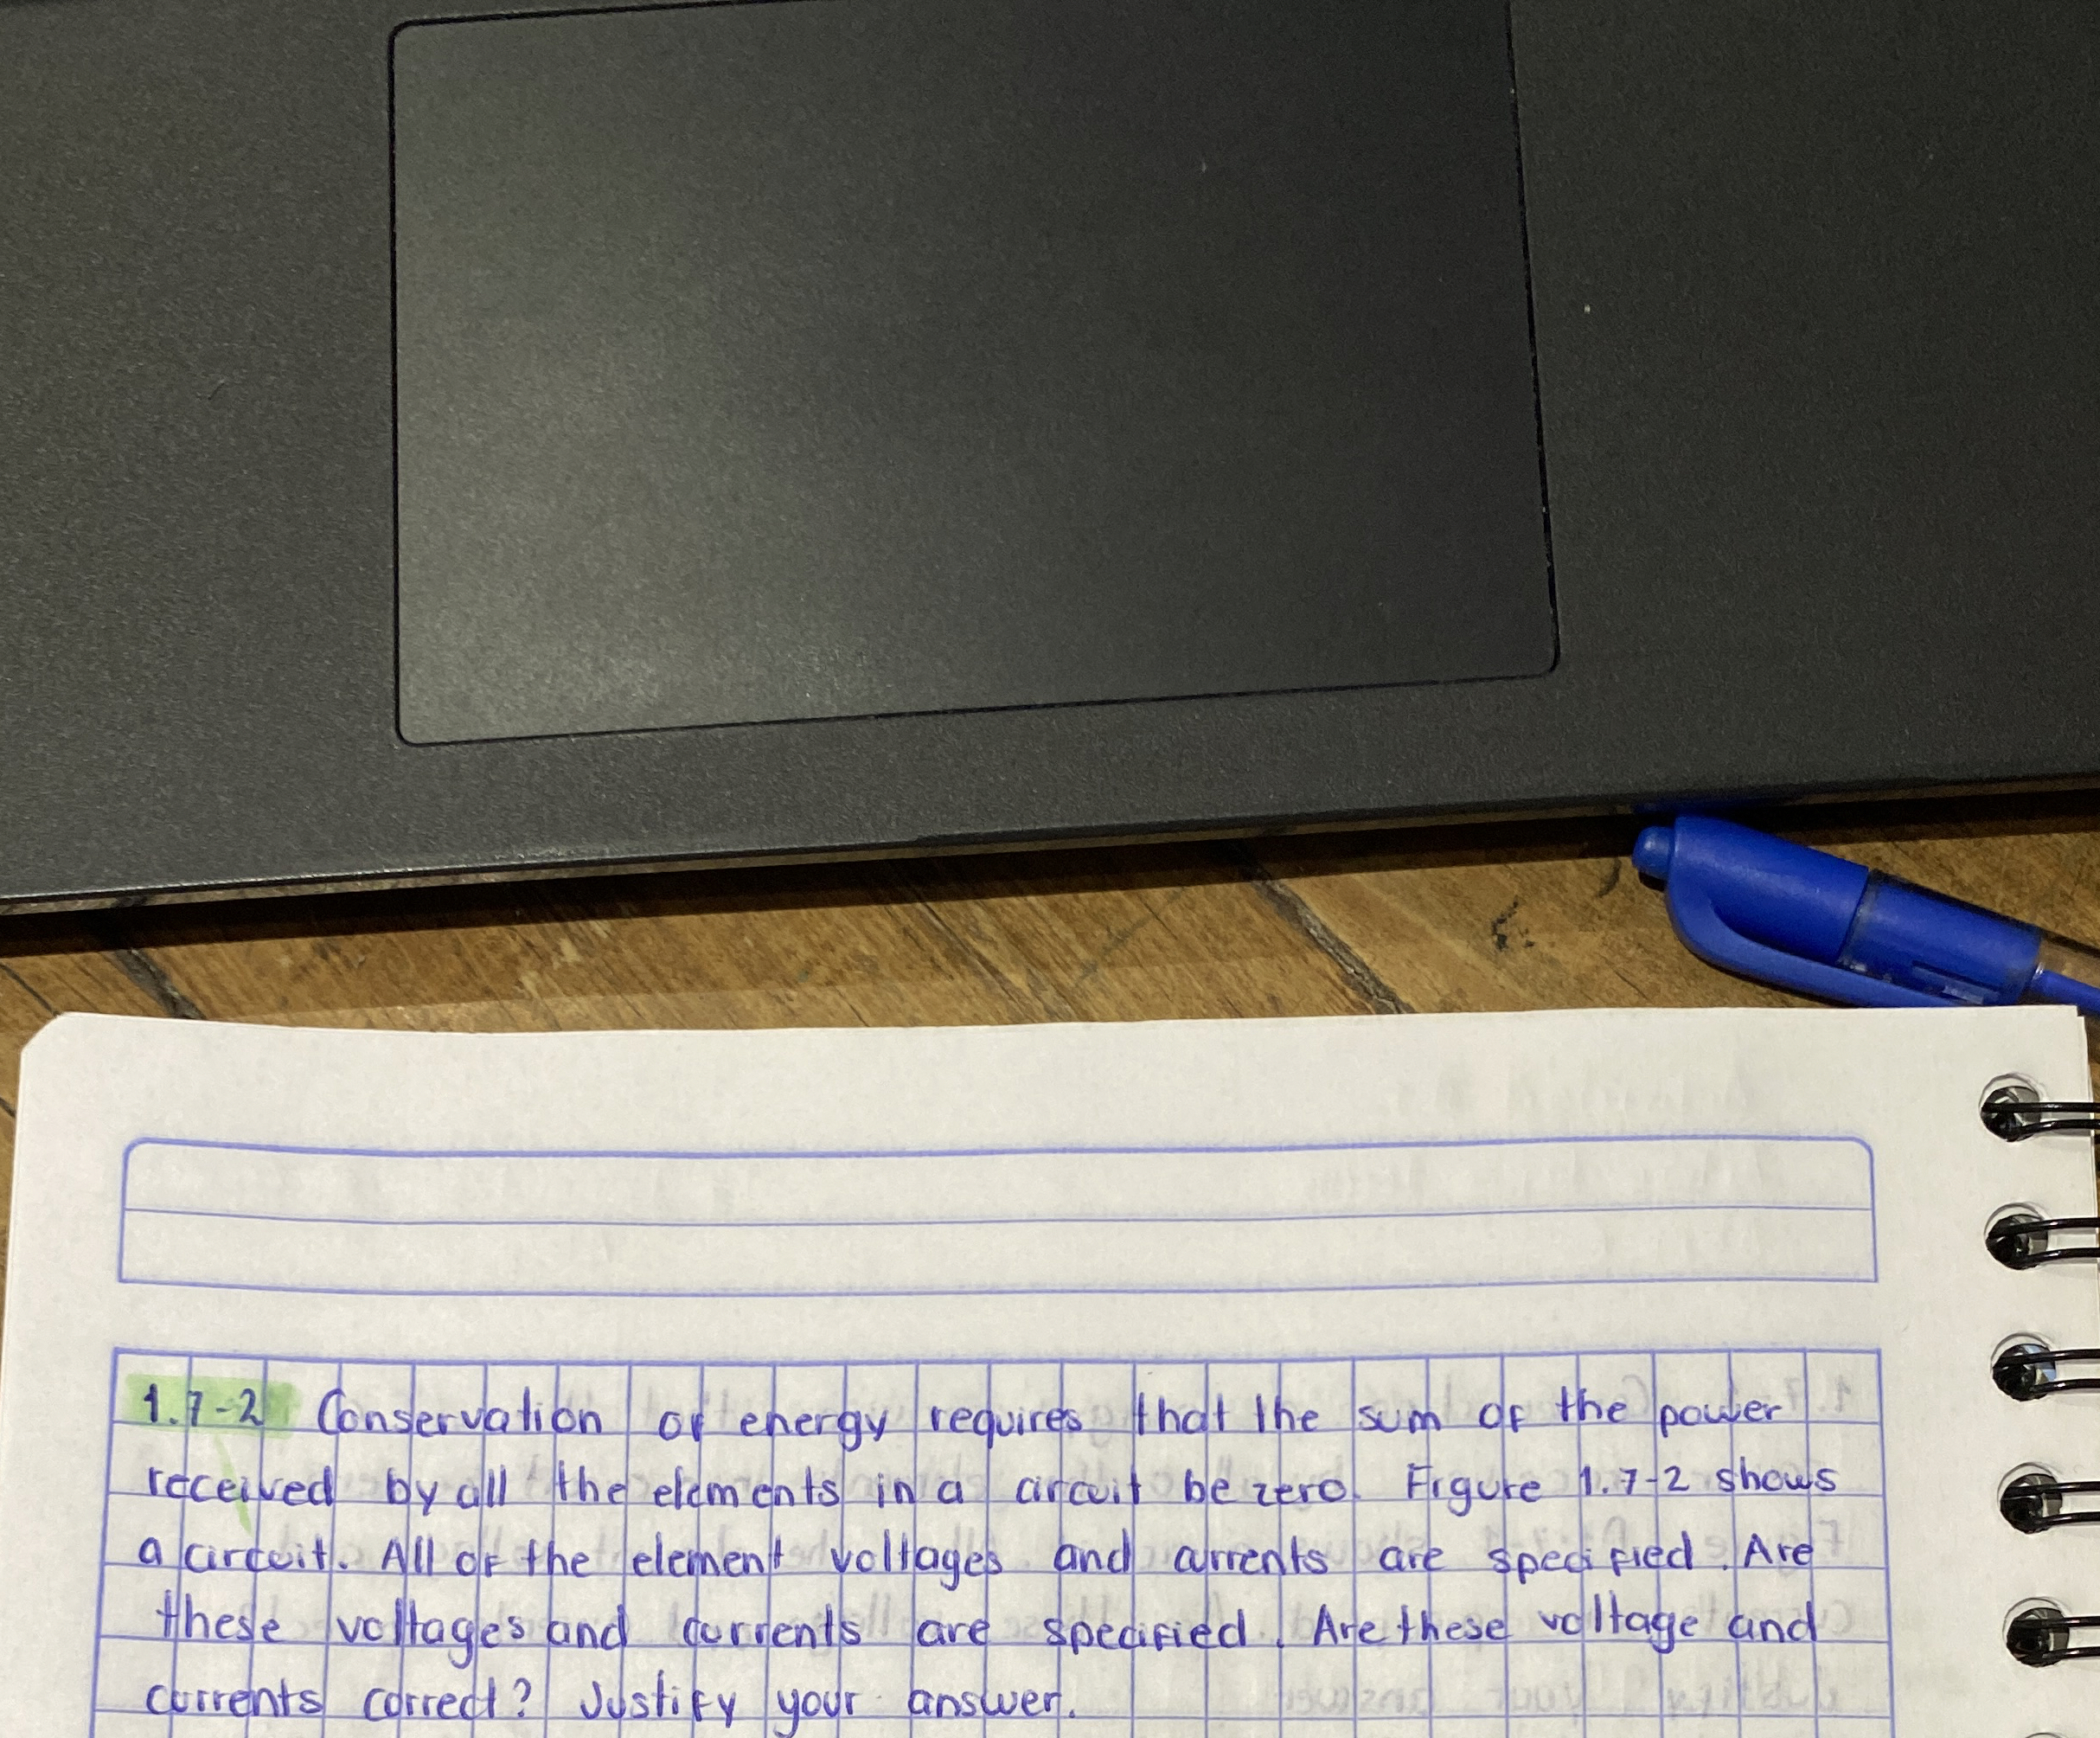 1.7-2 Conservation of energy requires that the sum of the power
received by all the elements in a circuit be zero. Figure 1.7-2 shows
a circuit. All of the element voltages and currents are specified. Are
these voltages and currents are specified. Are these voltage and
currents correct? Justify your answer.